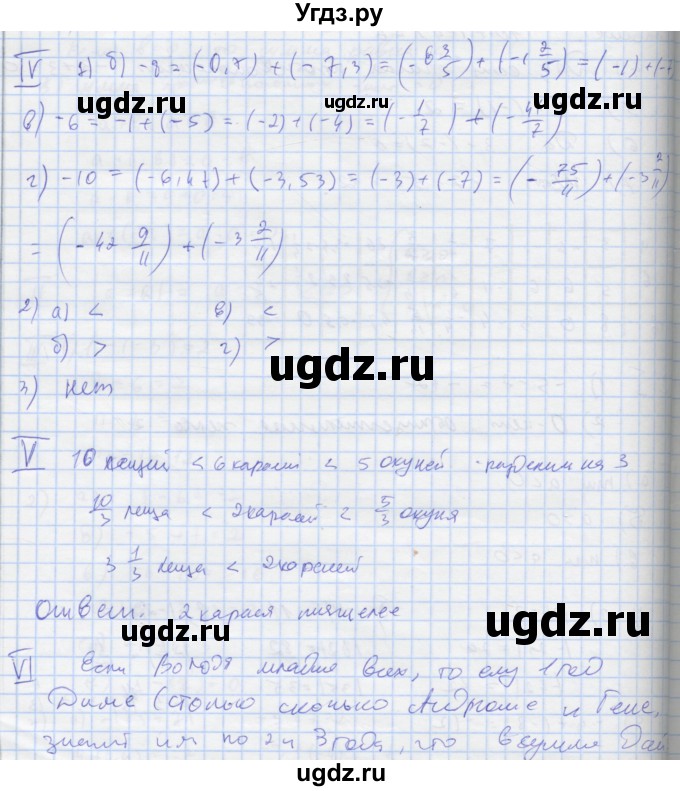 Угдз.ру
IV 1) б) -8 = (-0,7) + (-7,3) = (-6 3/5) + (-1 2/5) = (-1) + (-7
в) -6 = -1 + (-5) = (-2) + (-4) = (-1/7) + (-41/7)
г) -10 = (-6,47) + (-3,53) = (-3) + (-7) = (-75/11) + (-3 2/11)
= (-42 9/11) + (-3 2/11)
2) а) < в) <
ugdz.ru ugdz.ru
б) > г) >
ugdz.ru
3) нет
V 10 лещей < 6 карасей < 5 окуней разделим на 3
10/3 леща < 2 карасей < 5/3 окуня
3 1/3 леща < 2 карасей
ugdz.ru
Ответ: 2 карася тяжелее
ugdz.ru
VI Если Володя младше всех, то ему 1 год
Диме (столько сколько Андрюше и Гене,
значит им по 2 и 3 года, что в сумме
ugdz.ru